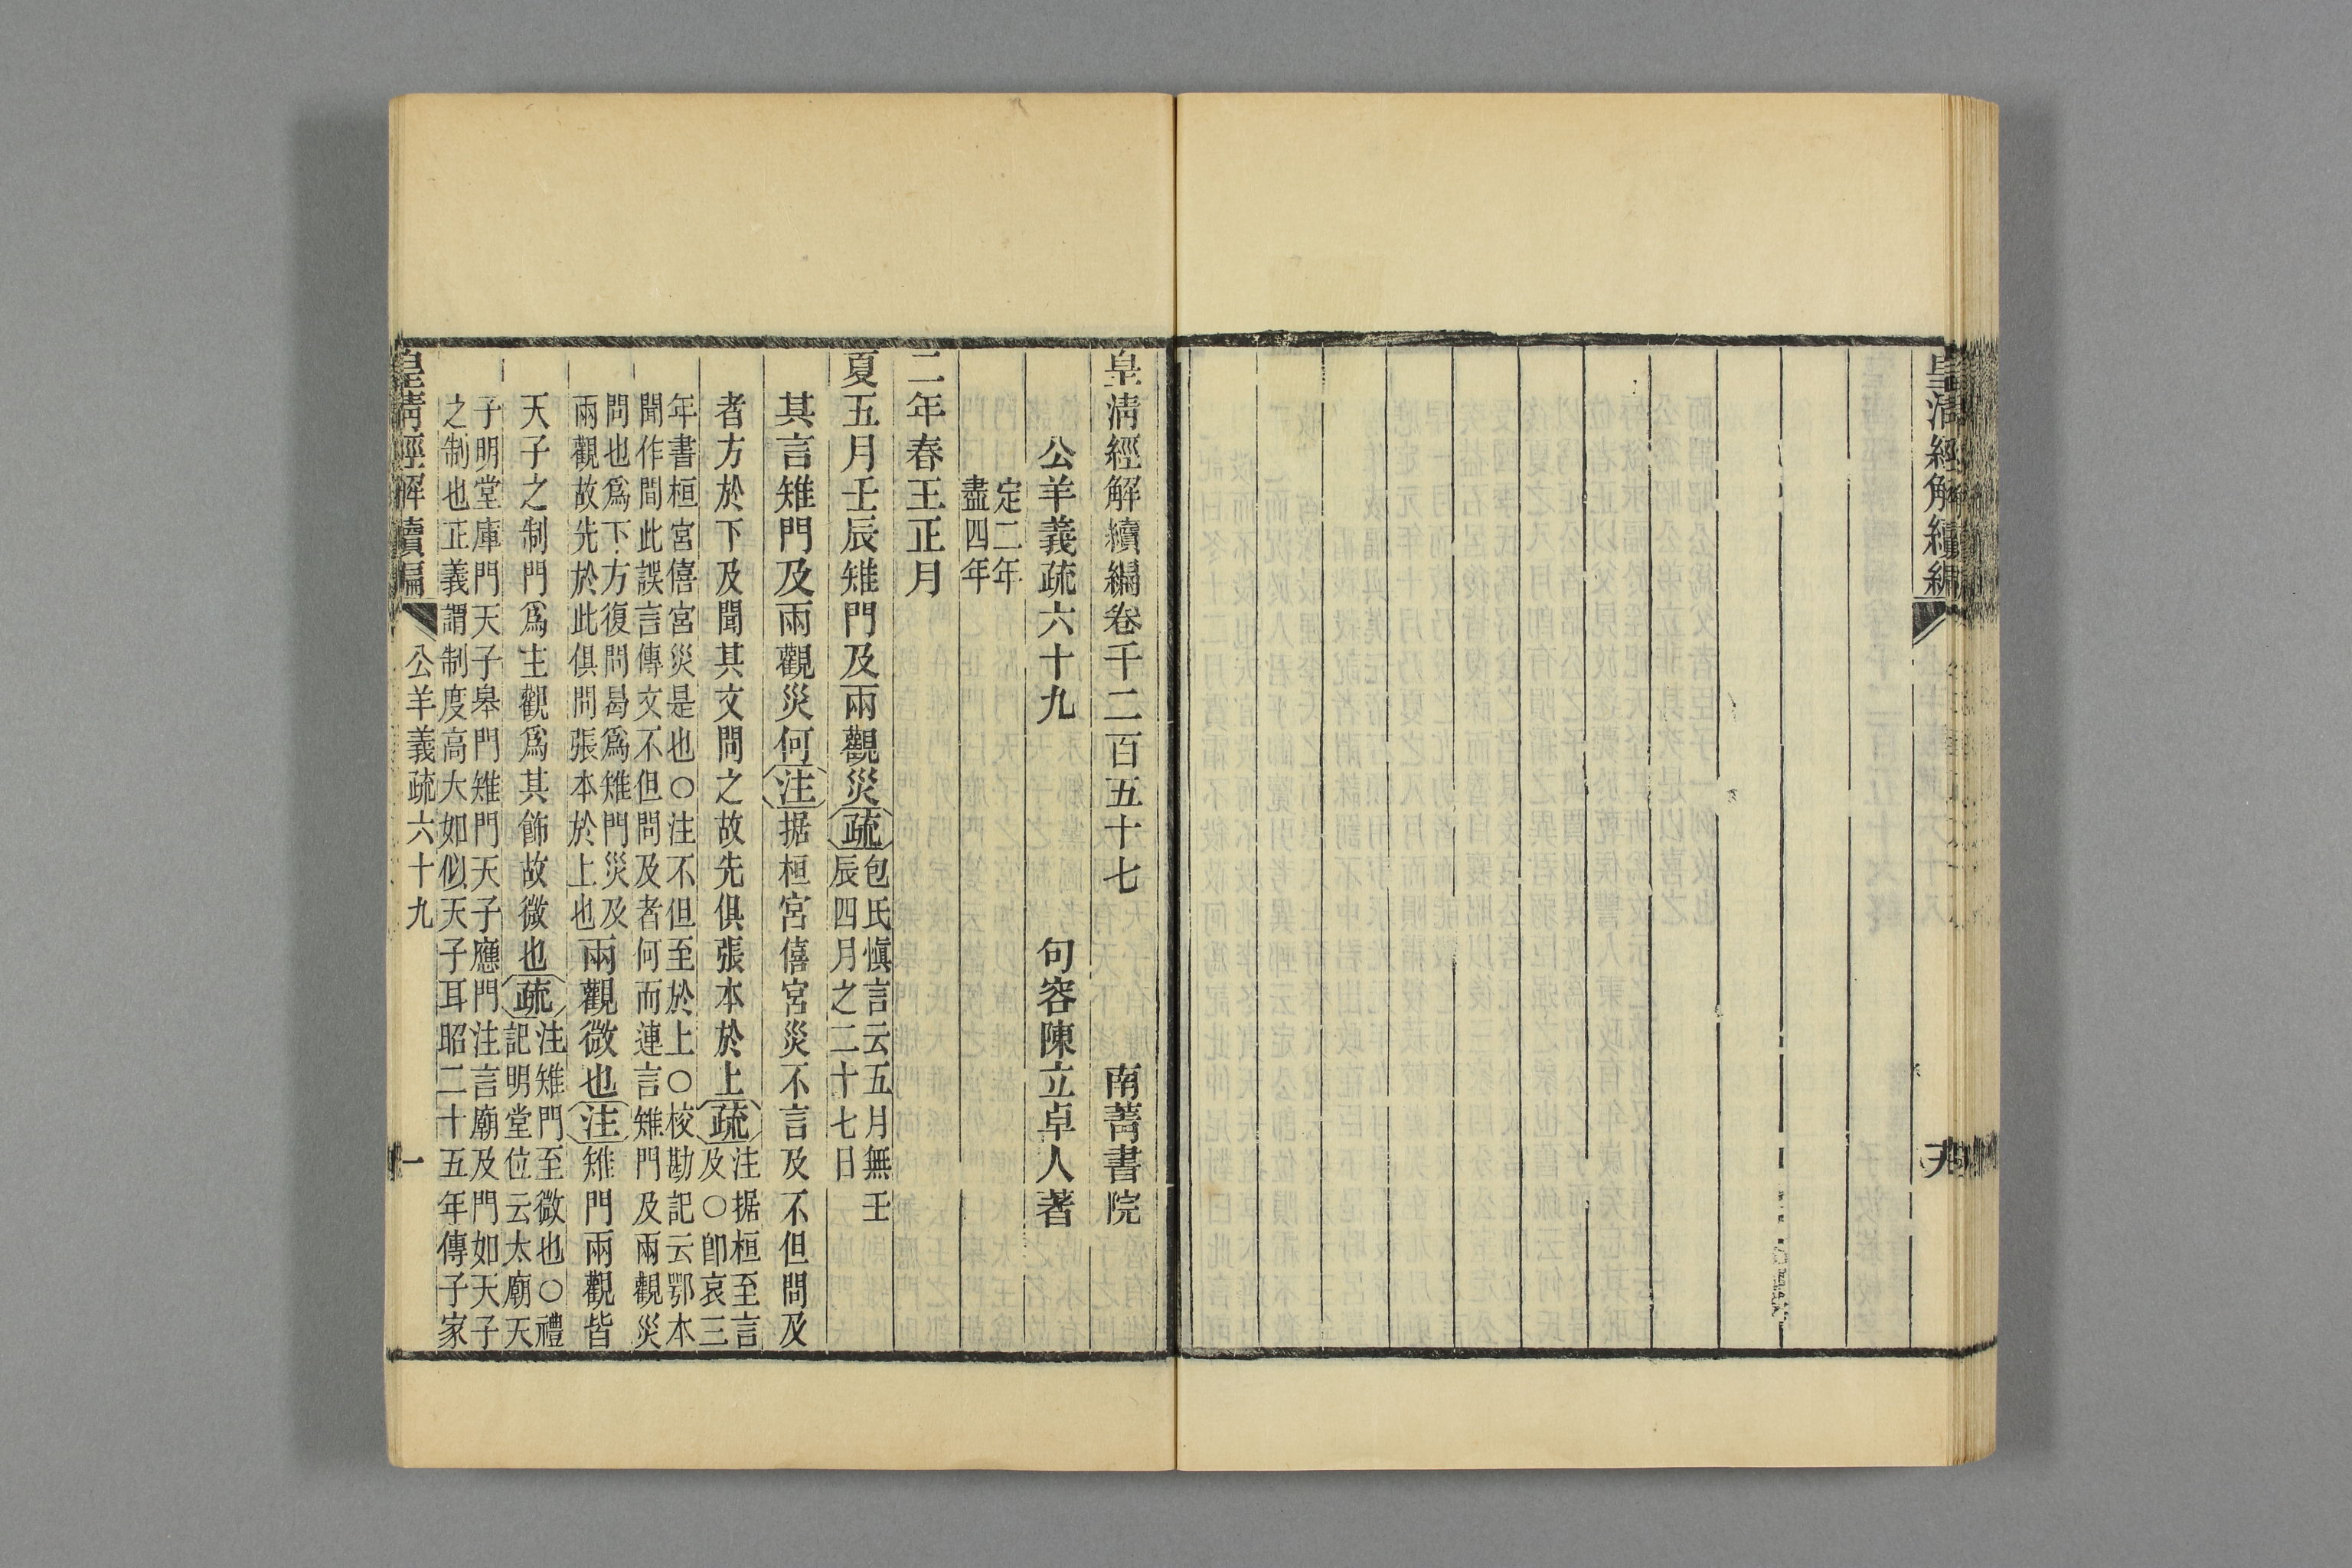 皇清經解續編
皇清經解續編卷千二百五十七 南菁書院
公羊義疏六十九 句容陳立卓人著
定二年
盡四年
二年春王正月
夏五月壬辰雉門及兩觀災疏包氏慎言云五月無壬
辰四月之二十七日
其言雉門及兩觀災何注据桓宮僖宮災不言及不但問及
者方於下及聞其文問之故先俱張本於上疏注据桓至言
及○卽哀三
年書桓宮僖宮災是也○注不但至於上○校勘記云鄂本
聞作間此誤言傳文不但問及者何而連言雉門及兩觀災
問也爲下方復問曷爲雉門災及
兩觀故先於此俱問張本於上也兩觀微也注雉門兩觀皆
天子之制門爲主觀爲其飾故微也疏注雉門至微也○禮
記明堂位云太廟天
子明堂庫門天子皋門雉門天子應門注言廟及門如天子
之制也正義謂制度高大如似天子耳昭二十五年傳子家
皇清經解續編 公羊義疏六十九 一